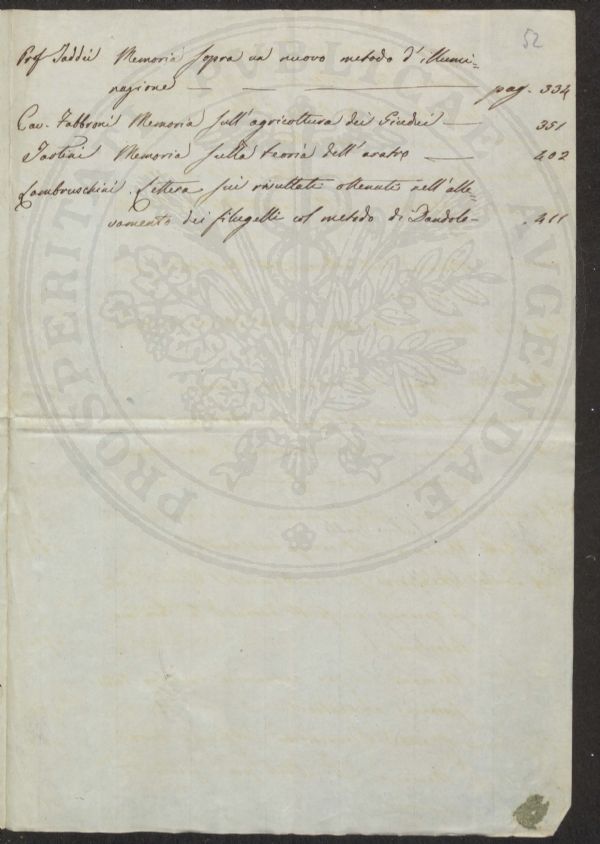 52
Prof Taddei Memoria sopra un nuovo metodo d'illumi=
nazione — — — pag. 334
Cav. Fabbroni Memoria sull'agricoltura dei Giudei — 351
Tartini Memoria sulla teoria dell'aratro — 402
Lambruschini Lettera sui risultati ottenuti nell'alle=
vamento dei filugelli col metodo di Dandolo - . 411
PROSPERITATI PVBLICAE AVGENDAE